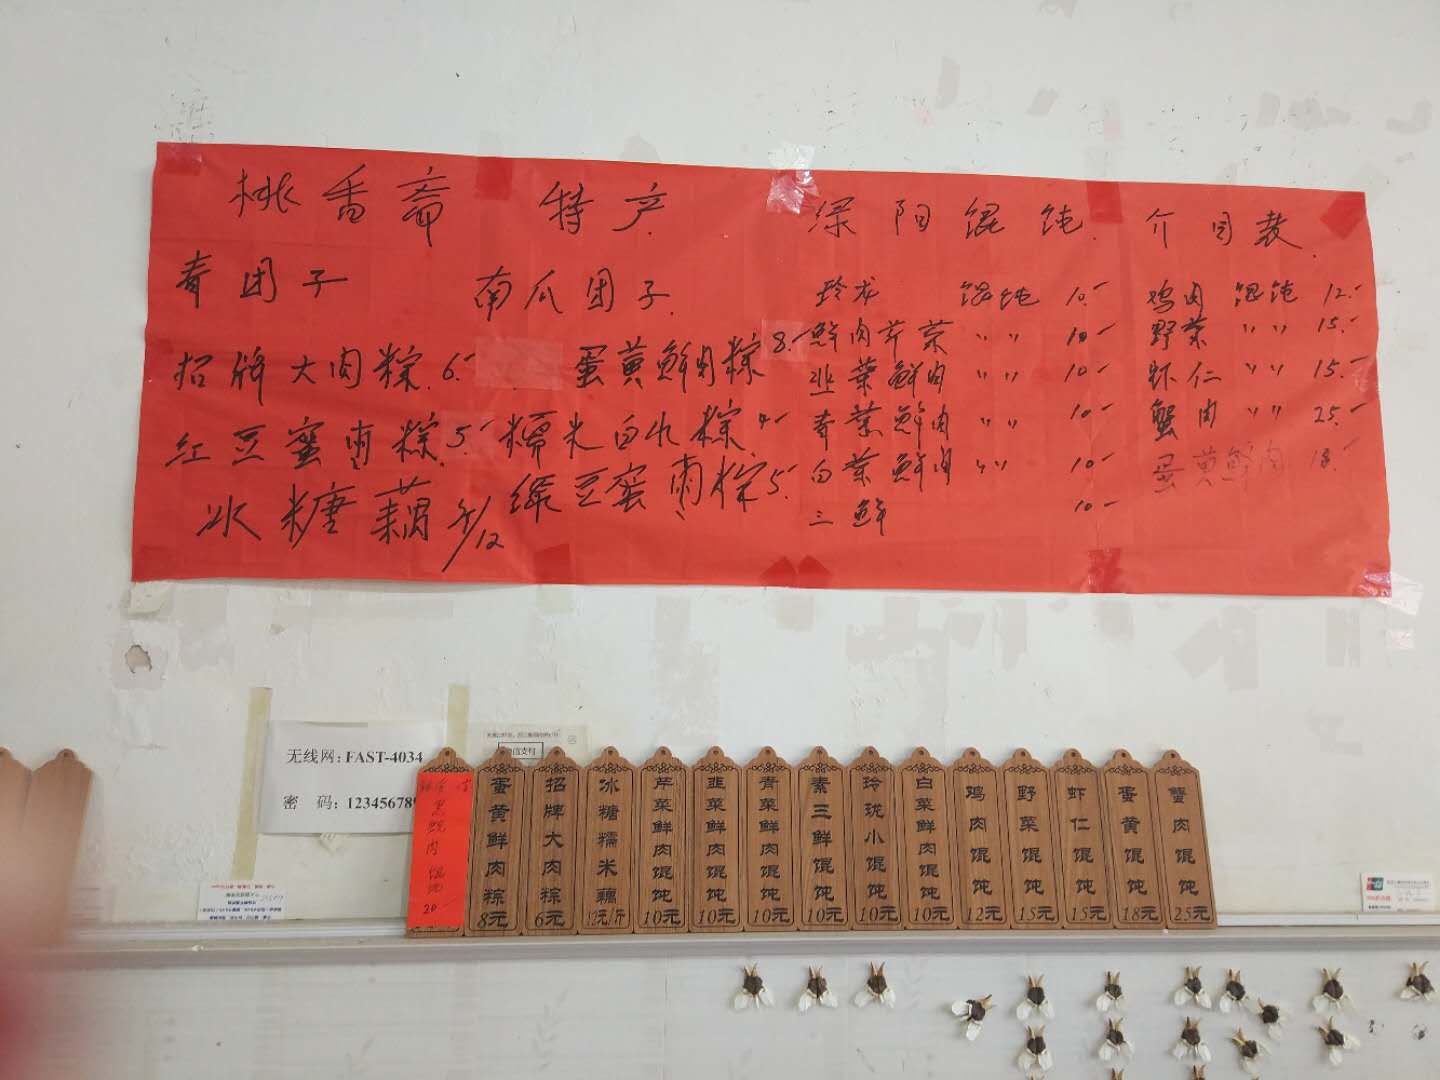 桃香斋 特产
青团子 南瓜团子
招牌大肉粽 6.- 蛋黄鲜肉粽 8.-
红豆蜜枣粽 5.- 糯米白水粽 4.-
冰糖藕 斤/12 绿豆蜜枣粽 5.-
绿阳馄饨 介目表
玲龙 馄饨 10.-
鲜肉芹菜 〃 〃 10-
韭菜鲜肉 〃 〃 10-
青菜鲜肉 〃 〃 10-
白菜鲜肉 〃 〃 10-
三鲜 10-
鸡肉 馄饨 12.-
野菜 〃 〃 15.-
虾仁 〃 〃 15.-
蟹肉 〃 〃 25.-
蛋黄鲜肉 18.-
无线网: FAST-4034
密 码: 123456789
馄饨 20-
蛋黄鲜肉粽 8元
招牌大肉粽 6元
冰糖糯米藕 12元/斤
芹菜鲜肉馄饨 10元
韭菜鲜肉馄饨 10元
青菜鲜肉馄饨 10元
素三鲜馄饨 10元
玲珑小馄饨 10元
白菜鲜肉馄饨 10元
鸡肉馄饨 12元
野菜馄饨 15元
虾仁馄饨 15元
蛋黄馄饨 18元
蟹肉馄饨 25元